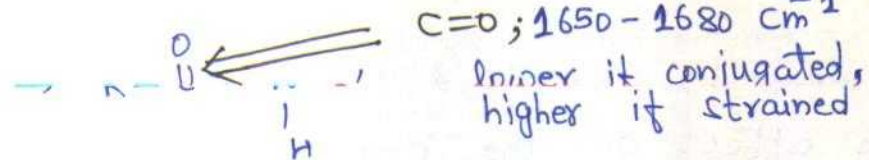 C=O ; 1650 - 1680 cm⁻¹
O
lower if conjugated,
higher if strained
H